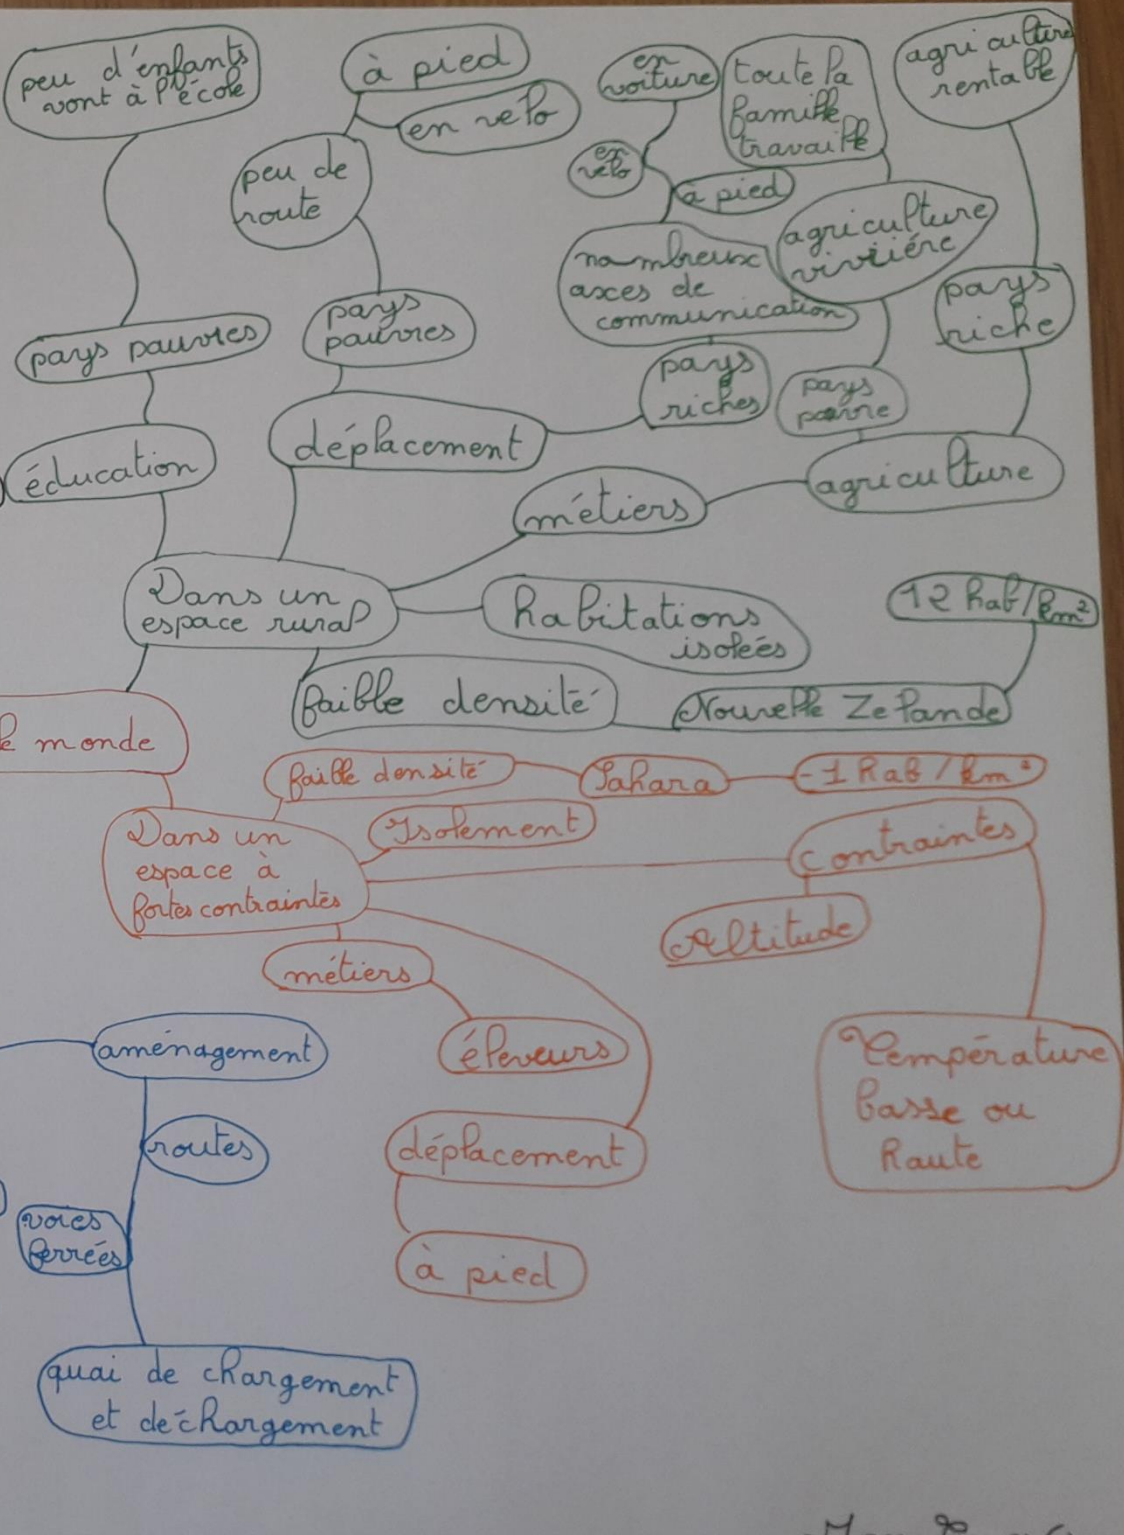 peu d'enfants
vont à l'école
à pied
en vélo
peu de
route
en
voiture
en
vélo
à pied
toute la
famille
travaille
agriculture
rentable
agriculture
vivriére
nombreux
axces de
communication
pays
riche
pays pauvres
pays
pauvres
pays
riches
pays
pauvre
éducation
déplacement
métiers
agriculture
Dans un
espace rural
habitations
isoleés
12 hab/km²
faible densité
Nouvelle Zelande
le monde
faible densité
Sahara
-1 hab/km²
Isolement
Dans un
espace à
fortes contraintes
contraintes
Altitude
métiers
éleveurs
Température
basse ou
haute
déplacement
à pied
aménagement
routes
voies
ferrées
quai de chargement
et déchargement